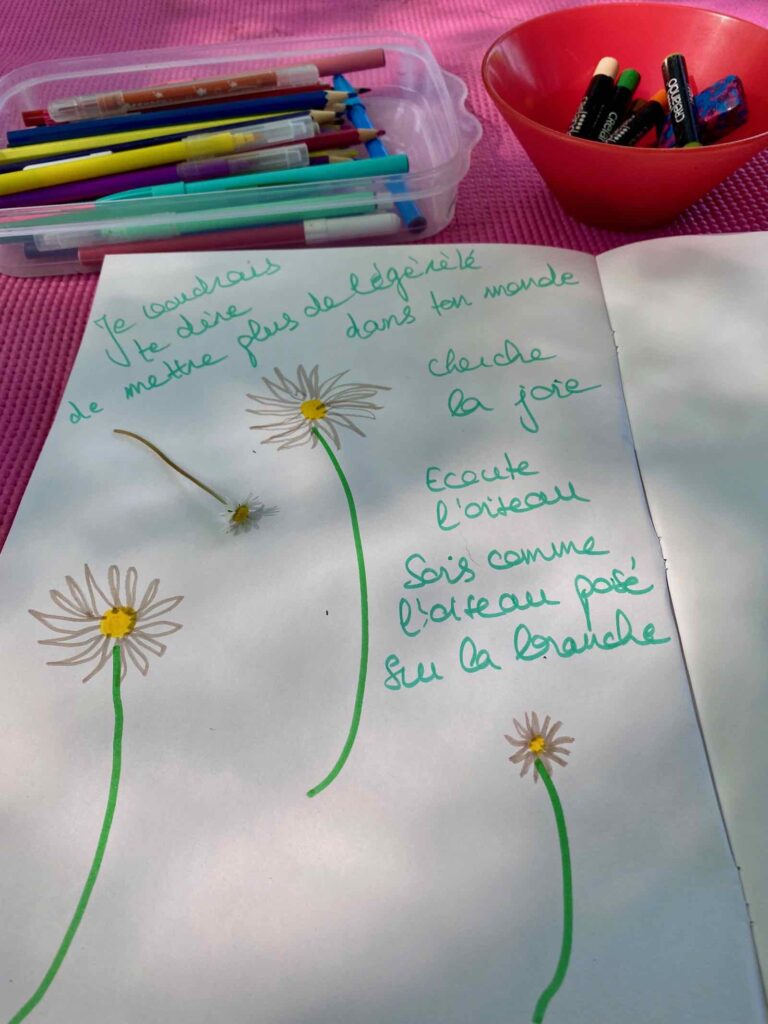 Je voudrais
te dire
de mettre plus de légèrèté
dans ton monde
cherche
la joie
Ecoute
l'oiseau
Sois comme
l'oiseau posé
sur la branche